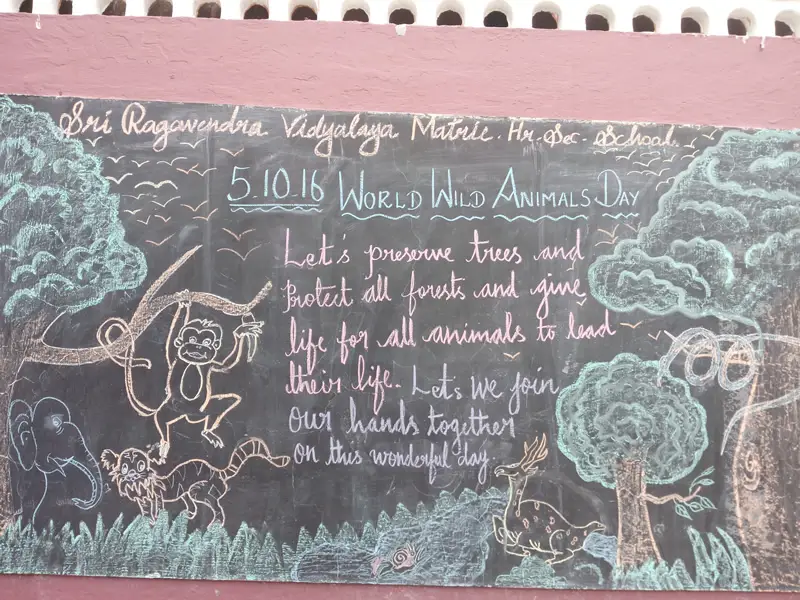 Sri Ragavendra Vidyalaya Matric. Hr. Sec. School.
5.10.16 World Wild Animals Day
Let's preserve trees and
Protect all forests and give
life for all animals to lead
their life. Let's We join
our hands together
on this wonderful day.